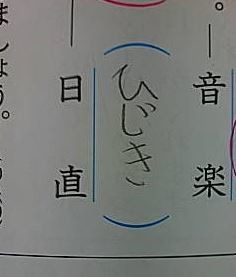 。
音楽
ひじき
日直
ましょう。